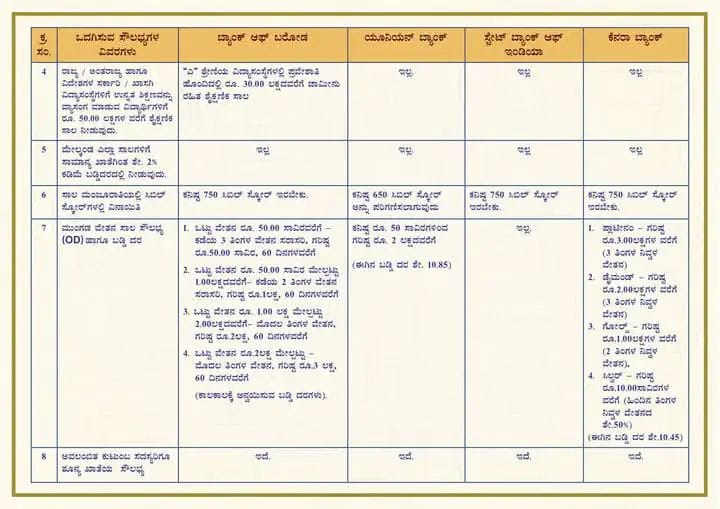 ಕ್ರ. ಸಂ.
ಒದಗಿಸುವ ಸೌಲಭ್ಯಗಳ
ವಿವರಗಳು
ಬ್ಯಾಂಕ್ ಆಫ್ ಬರೋಡ
ಯೂನಿಯನ್ ಬ್ಯಾಂಕ್
ಸ್ಟೇಟ್ ಬ್ಯಾಂಕ್ ಆಫ್
ಇಂಡಿಯಾ
ಕೆನರಾ ಬ್ಯಾಂಕ್
4
ರಾಜ್ಯ / ಅಂತರಾಜ್ಯ ಹಾಗೂ
ವಿದೇಶಗಳ ಸರ್ಕಾರಿ / ಖಾಸಗಿ
ವಿದ್ಯಾಸಂಸ್ಥೆಗಳಿಗೆ ಉನ್ನತ ಶಿಕ್ಷಣವನ್ನು
ವ್ಯಾಸಂಗ ಮಾಡುವ ವಿದ್ಯಾರ್ಥಿಗಳಿಗೆ
ರೂ. 50.00 ಲಕ್ಷಗಳ ವರೆಗೆ ಶೈಕ್ಷಣಿಕ
ಸಾಲ ನೀಡುವುದು.
"ಎ" ಶ್ರೇಣಿಯ ವಿದ್ಯಾಸಂಸ್ಥೆಗಳಲ್ಲಿ ಪ್ರವೇಶಾತಿ
ಹೊಂದಿದಲ್ಲಿ ರೂ. 30.00 ಲಕ್ಷದವರೆಗೆ ಜಾಮೀನು
ರಹಿತ ಶೈಕ್ಷಣಿಕ ಸಾಲ
ಇಲ್ಲ.
ಇಲ್ಲ
ಇಲ್ಲ
5
ಮೇಲ್ಕಂಡ ಎಲ್ಲಾ ಸಾಲಗಳಿಗೆ
ಸಾಮಾನ್ಯ ಖಾತೆಗಿಂತ ಶೇ. 2%
ಕಡಿಮೆ ಬಡ್ಡಿದರದಲ್ಲಿ ನೀಡುವುದು.
ಇಲ್ಲ
ಇಲ್ಲ.
ಇಲ್ಲ
ಇಲ್ಲ
6
ಸಾಲ ಮಂಜೂರಾತಿಯಲ್ಲಿ ಸಿಬಿಲ್
ಸ್ಕೋರ್‌ಗಳಲ್ಲಿ ವಿನಾಯಿತಿ
ಕನಿಷ್ಟ 750 ಸಿಬಿಲ್ ಸ್ಕೋರ್ ಇರಬೇಕು.
ಕನಿಷ್ಟ 650 ಸಿಬಿಲ್ ಸ್ಕೋರ್
ಅನ್ನು ಪರಿಗಣಿಸಲಾಗುವುದು
ಕನಿಷ್ಟ 750 ಸಿಬಿಲ್ ಸ್ಕೋರ್
ಇರಬೇಕು.
ಕನಿಷ್ಟ 750 ಸಿಬಿಲ್ ಸ್ಕೋರ್
ಇರಬೇಕು.
7
ಮುಂಗಡ ವೇತನ ಸಾಲ ಸೌಲಭ್ಯ
(OD) ಹಾಗೂ ಬಡ್ಡಿ ದರ
1. ಒಟ್ಟು ವೇತನ ರೂ. 50.00 ಸಾವಿರವರೆಗೆ –
ಕಡೆಯ 3 ತಿಂಗಳ ವೇತನ ಸರಾಸರಿ, ಗರಿಷ್ಟ
ರೂ.50.00 ಸಾವಿರ, 60 ದಿನಗಳವರೆಗೆ
2. ಒಟ್ಟು ವೇತನ ರೂ. 50.00 ಸಾವಿರ ಮೇಲ್ಪಟ್ಟು
1.00ಲಕ್ಷದವರೆಗೆ– ಕಡೆಯ 2 ತಿಂಗಳ ವೇತನ
ಸರಾಸರಿ, ಗರಿಷ್ಟ ರೂ.1ಲಕ್ಷ, 60 ದಿನಗಳವರೆಗೆ
3. ಒಟ್ಟು ವೇತನ ರೂ. 1.00 ಲಕ್ಷ ಮೇಲ್ಪಟ್ಟು
2.00ಲಕ್ಷದವರೆಗೆ– ಮೊದಲ ತಿಂಗಳ ವೇತನ,
ಗರಿಷ್ಟ ರೂ.2ಲಕ್ಷ, 60 ದಿನಗಳವರೆಗೆ
4. ಒಟ್ಟು ವೇತನ ರೂ.2ಲಕ್ಷ ಮೇಲ್ಪಟ್ಟು –
ಮೊದಲ ತಿಂಗಳ ವೇತನ, ಗರಿಷ್ಟ ರೂ.3 ಲಕ್ಷ,
60 ದಿನಗಳವರೆಗೆ
(ಕಾಲಕಾಲಕ್ಕೆ ಅನ್ವಯಿಸುವ ಬಡ್ಡಿ ದರಗಳು).
ಕನಿಷ್ಟ ರೂ. 50 ಸಾವಿರಗಳಿಂದ
ಗರಿಷ್ಟ ರೂ. 2 ಲಕ್ಷದವರೆಗೆ
(ಈಗಿನ ಬಡ್ಡಿ ದರ ಶೇ. 10.85)
ಇಲ್ಲ.
1. ಪ್ಲಾಟಿನಂ – ಗರಿಷ್ಟ
ರೂ.3.00ಲಕ್ಷಗಳ ವರೆಗೆ
(3 ತಿಂಗಳ ನಿವ್ವಳ
ವೇತನ)
2. ಡೈಮಂಡ್ – ಗರಿಷ್ಟ
ರೂ.2.00ಲಕ್ಷಗಳ ವರೆಗೆ
(3 ತಿಂಗಳ ನಿವ್ವಳ
ವೇತನ)
3. ಗೋಲ್ಡ್ – ಗರಿಷ್ಟ
ರೂ.1.00ಲಕ್ಷಗಳ ವರೆಗೆ
(2 ತಿಂಗಳ ನಿವ್ವಳ
ವೇತನ),
4. ಸಿಲ್ವರ್ – ಗರಿಷ್ಟ
ರೂ.10.00ಸಾವಿರಗಳ
ವರೆಗೆ (ಹಿಂದಿನ ತಿಂಗಳ
ನಿವ್ವಳ ವೇತನದ
ಶೇ.50%)
(ಈಗಿನ ಬಡ್ಡಿ ದರ ಶೇ.10.45)
8
ಅವಲಂಬಿತ ಕುಟುಂಬ ಸದಸ್ಯರಿಗೂ
ಶೂನ್ಯ ಖಾತೆಯ ಸೌಲಭ್ಯ
ಇದೆ.
ಇದೆ.
ಇದೆ.
ಇದೆ.